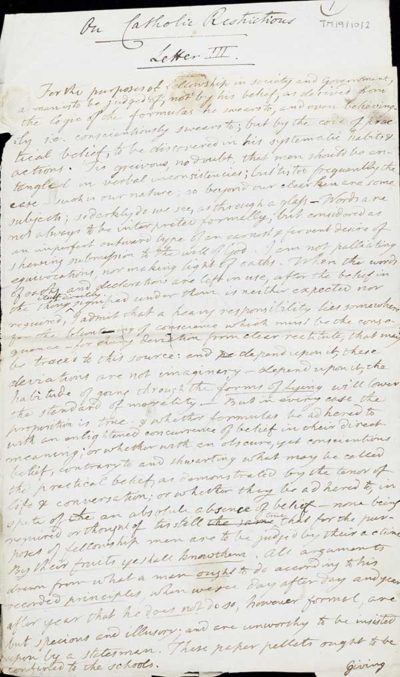 On Catholic Restrictions
TM19/10/2
Letter III.
For the purposes of fellowship in society and government,
a man is to be judged of, not by his belief, as derived from
the logic of the formulas he swears to, and even believing-
ly i.e. conscientiously swears to; but by the code of prac-
tical belief, to be discovered in his systematic habits &
actions. Tis grievous, no doubt, that men should be en-
tangled in verbal inconsistencies; but tis too frequently the
case such is our nature; so beyond our are some
subjects; so darkly do we see, as through a glass - Words are
not always to be interpreted formally; but considered as
an imperfect outward type of an earnest & fervent desire of
shewing submission to the will of God. I am not palliating
equivocations, nor making light of oaths. When the words
of oaths and declarations are left in use, after the belief in
the signified under them is neither expected nor
required, I admit that a heavy responsibility lies somewhere
for the of conscience which must be the conse-
quence - for every deviation from clear rectitude, that may
be traced to this source: and depend upon it, these
deviations are not imaginary - depend upon it, the
habitude of going through the forms of lying will lower
the standard of morality. - But in every case the
proposition is true, whether formulas be adhered to
with an enlightened concurrence of belief in their direct
meaning; or whether with an obscure, yet conscientious
belief, contrary to and thwarting what may be called
the practical belief, as demonstrated by the tenor of
life & conversation; or whether they be adhered to, in
spite of the an absolute absence of belief - none being
required or thought of tis still the same, that for the pur-
poses of fellowship men are to be judged by their actions
By their fruits ye shall know them. All arguments
drawn from what a man ought to do according to his
recorded principles, when we see day after day and year
after year that he does not do so, however formal, are
but specious and illusory; and are unworthy to be insisted
upon by a statesman. These paper pellets ought to be
confined to the schools.
giving